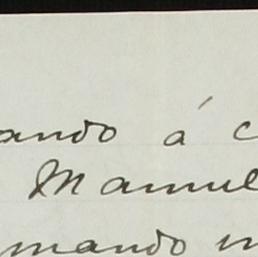 ando á c
Manuel
mando